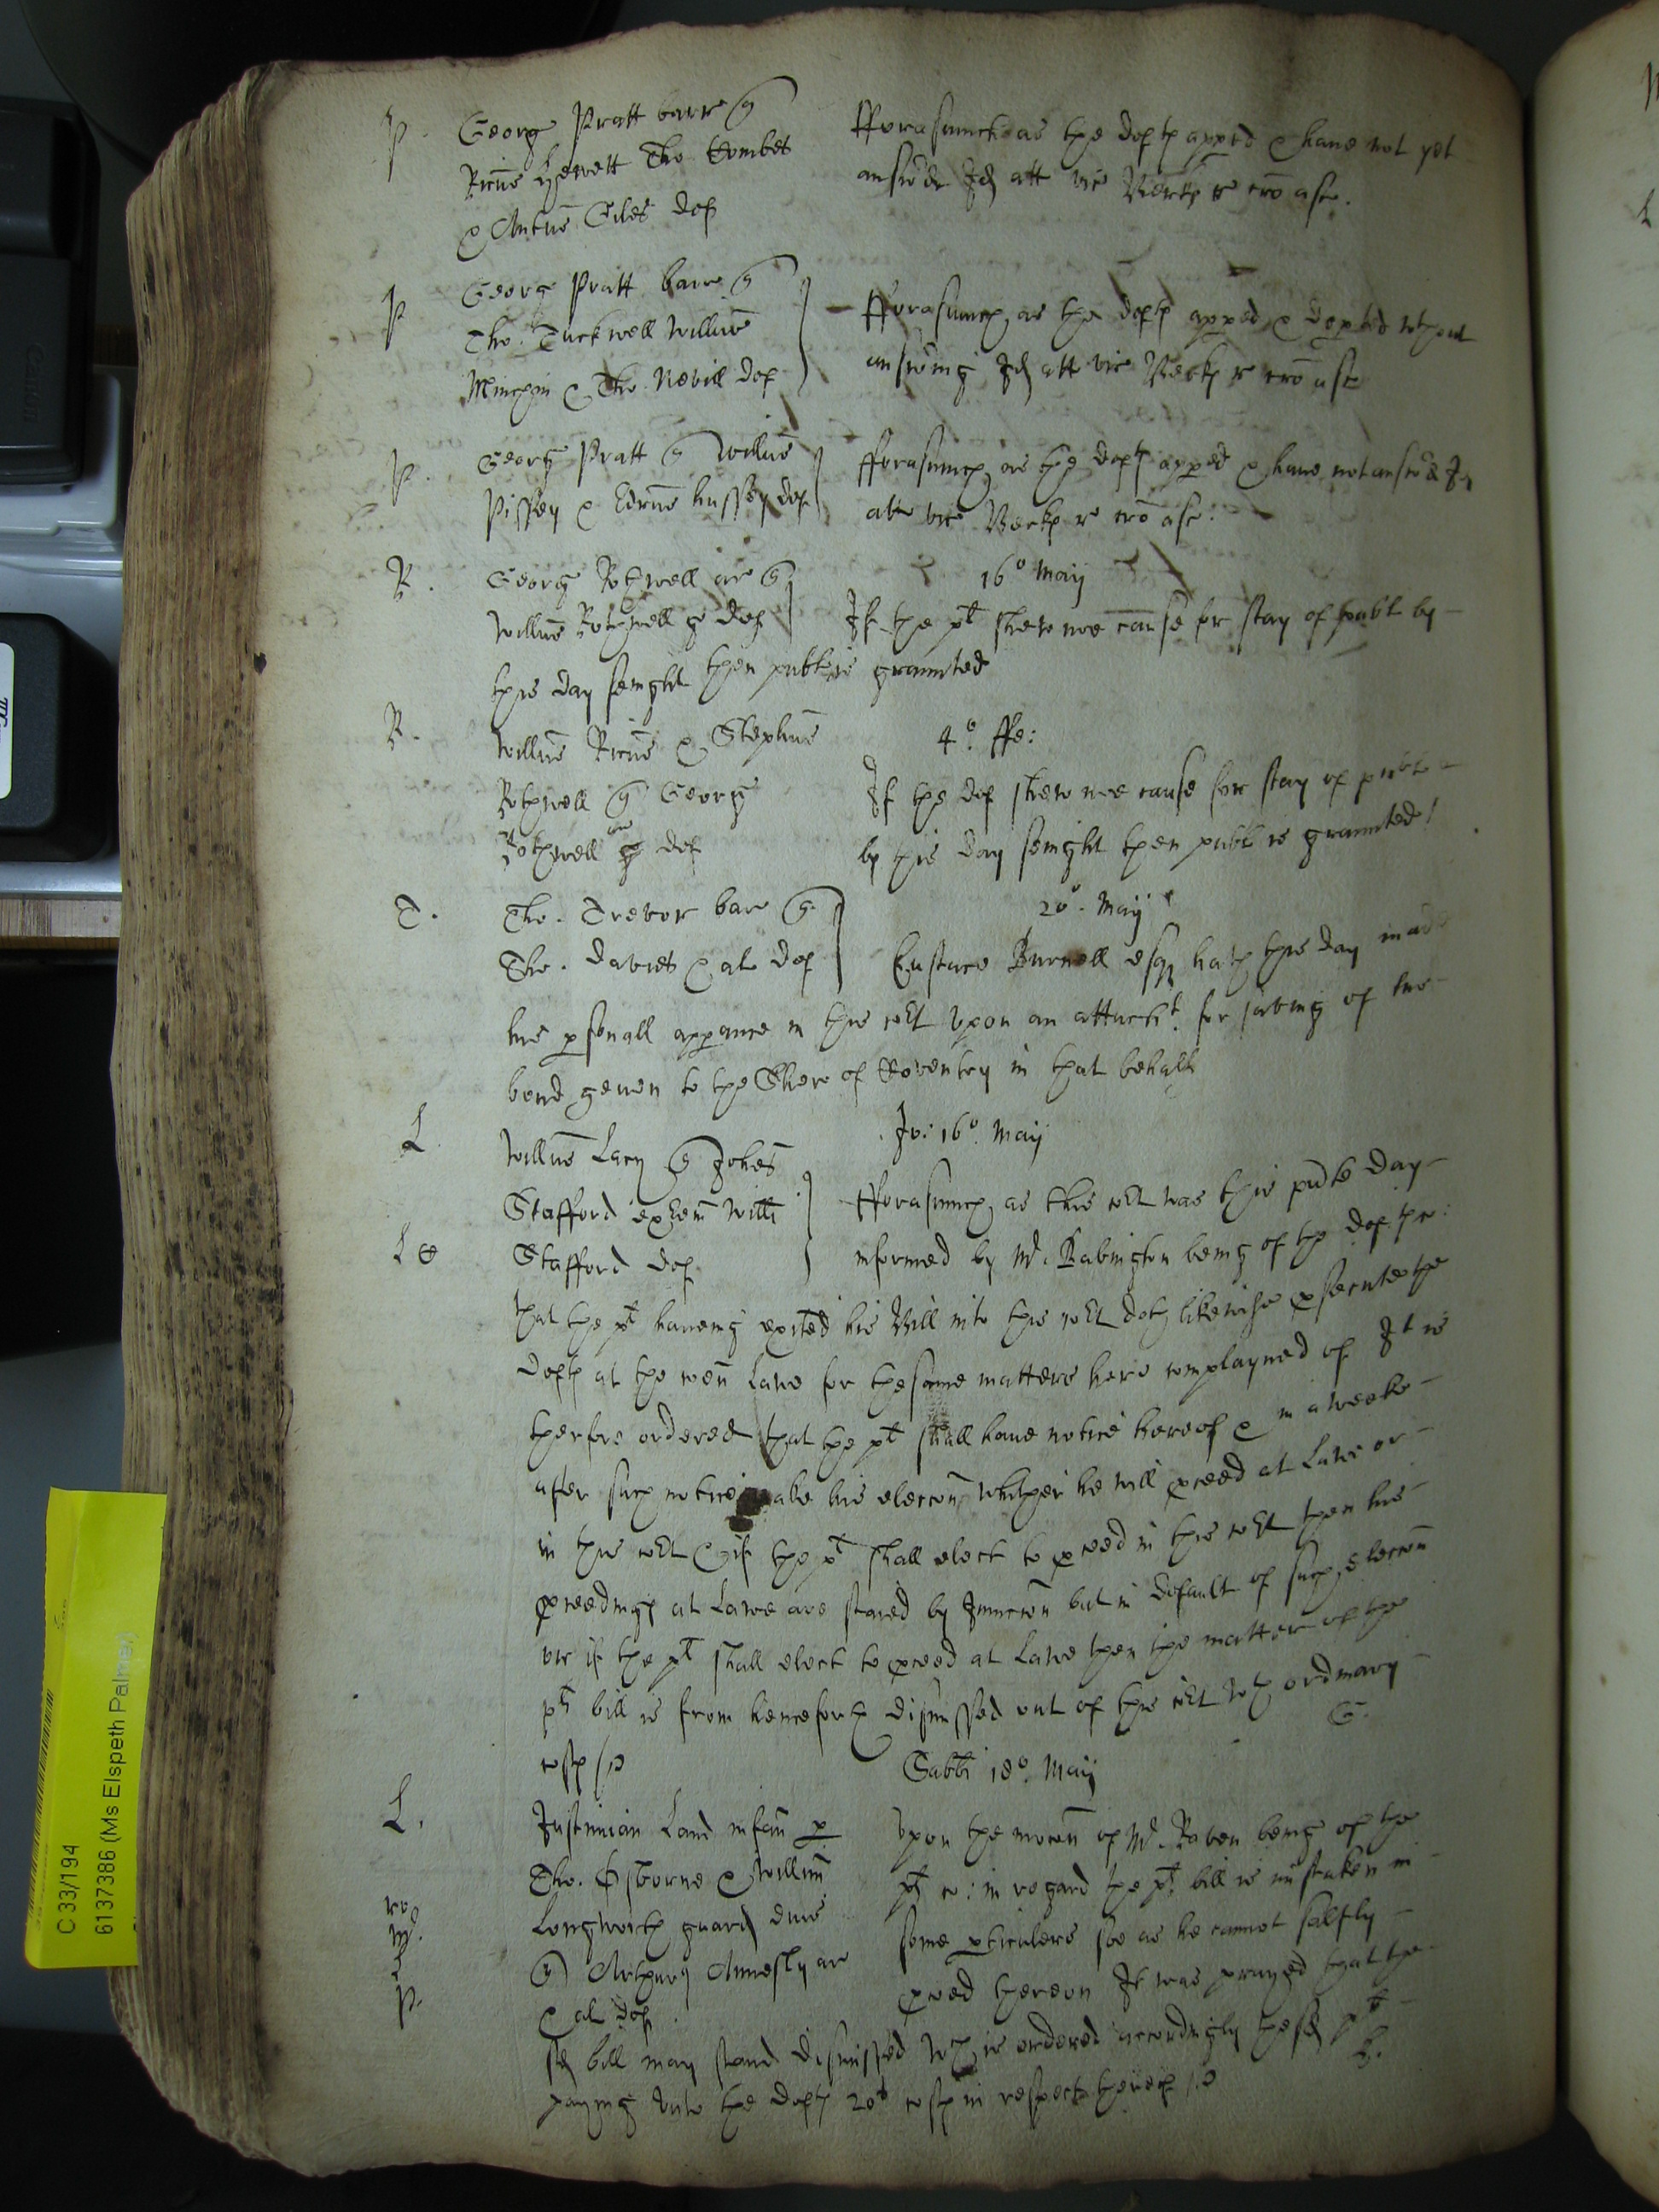 P. Georg Pratt barr q
Ricus Hewett Tho. Combes
& Antus Giles def
Fforasmuch as the deftes appred & have not yet
answ'de Id att vic Berks r cro asc.
P Georg Pratt barr q
Tho. Tuckwell Willus
Minchin & Tho. Nevill def
Fforasmuch as the deftes appred & depted without
answ'ing Id att vic Berks r cro asc
P. Georg Pratt q Willus
Pissey & Edrus hussey def
fforasmuch as the deftes appred & have not answ'd Id
att vic Berks r cro asc.
R. Georg Rothwell ar q
Willus Rothwell g def
16o Maij
If the plt shew noe cause for stay of publ by
this day senight then publ is graunted
R. Willus Ricus & Stephus
Rothwell q Georg
Rothwell ar def
4o. ffe:
If the def shew noe cause for stay of publ
by this day senight then publ is graunted
T. Tho. Trevor barr q
Tho. Davies & al def
20o. Maij
Eustace Burnell esqr hath this day made
his psonall apparance in this cort upon an attachmt. for saving of his
bond geven to the Sher of Coventry in that behalf
L. Willus Lacy q Johes
Stafford exec Willi
Stafford def
Jo: 16o Maij
Fforasmuch as this cort was this pnte day
L C
informed by Mr. Babington being of the def co:
that the plt haveing exhited his Bill into this cort doth likewise psecute the
deftes at the coen Lawe for the same matters here complayned of It is
therfore ordered that the plt shall have notice hereof & in a weeke
after such notice make his eleccon whether he will pceed at Lawe or
in this cort & if the plt shall elect to pceed in this cort then his
pceedings at Lawe are staied by Iniunccon but in default of such eleccon
or if the plt shall elect to pceed at Lawe then the matter of the
plts bill is from henceforth dismissed out of this cort wth ordinary
costs G.
Sabbti 18o. Maij
L. Justinian Land infan p
Tho. Osborne & Willim
Longworth guard suos
q Arthury Annesly ar
& al def
Upon the mocon of Mr. Raven being of the
plts co: in regard the plt bill is mistaken in
some pticulers soe as he cannot safely
pceed thereon It was prayed that the
ro
W.
P.
sd bill may stand dismissed wch is ordered accordingly the sd plt
paying unto the deftes 20s costs in respect thereof
C 33/194
6137386 (Ms Elspeth Palmer)
Canon